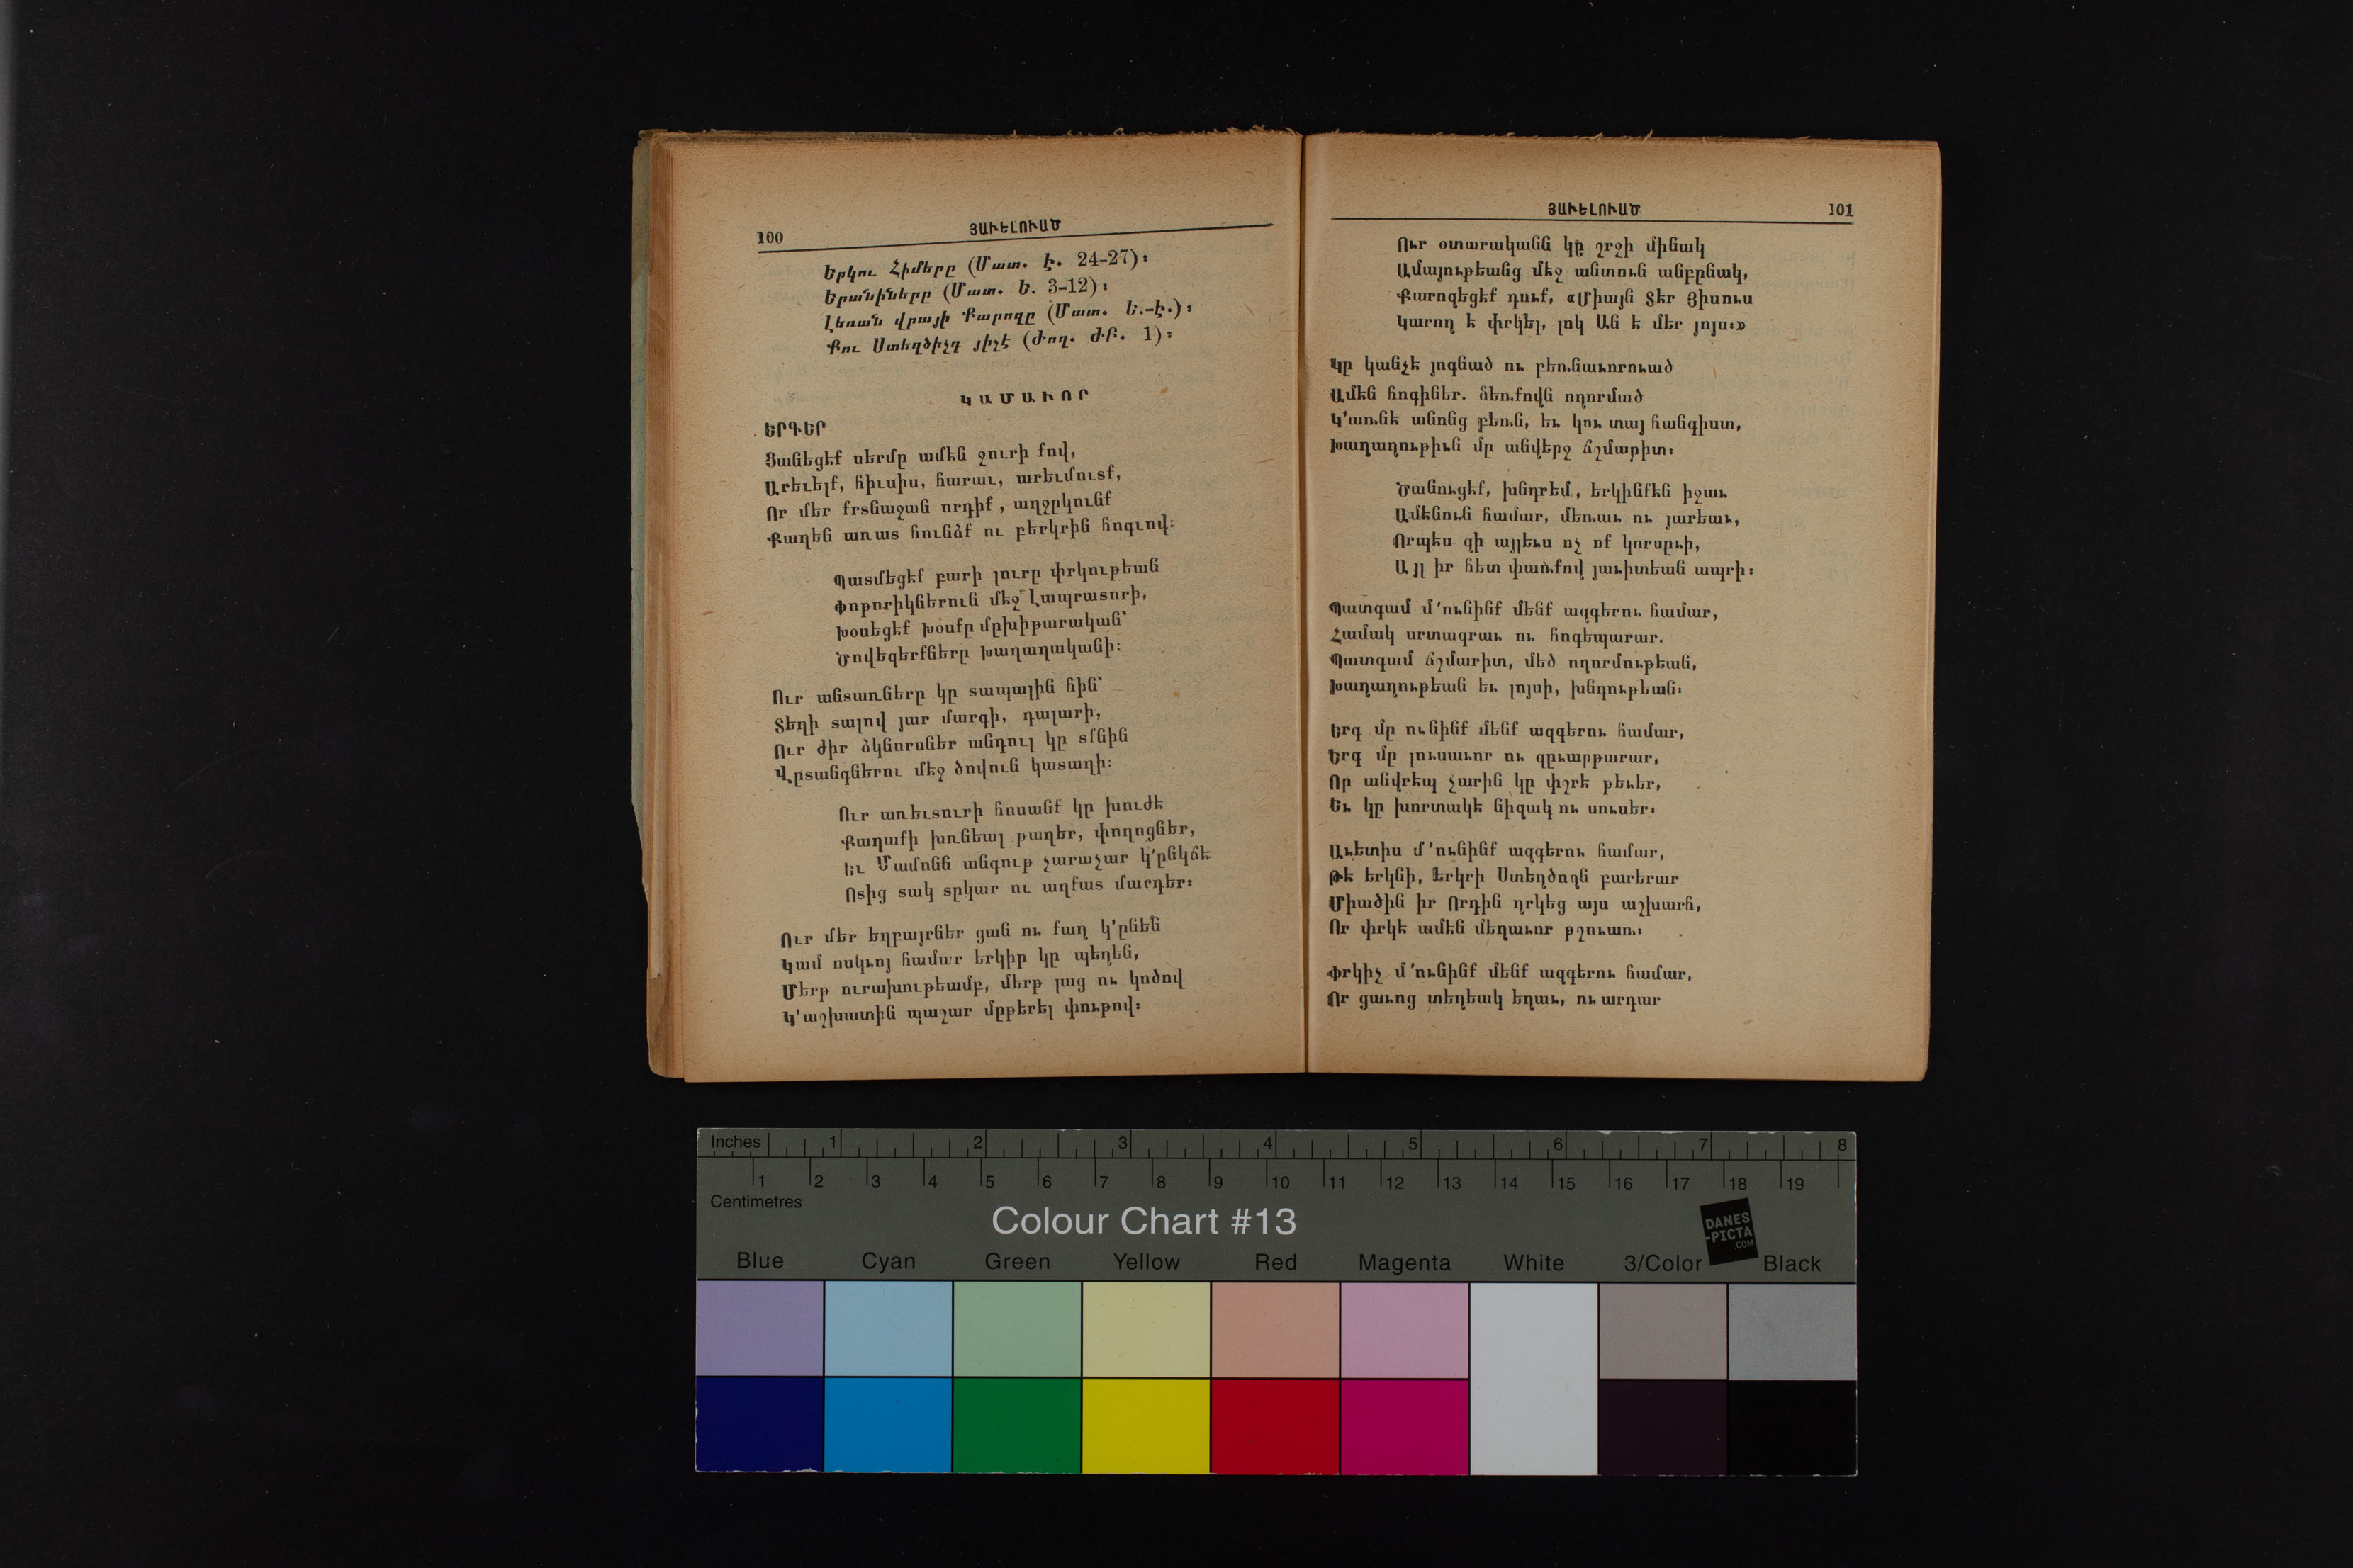 100
ՅԱՒԵԼՈՒԱԾ
Երկու Հիմերը (Մատ. Է. 24-27)։
Երանիները (Մատ. Ե. 3-12)։
Լեռան վրայի Քարոզը (Մատ. Ե.-Է.)։
Քու Ստեղծիչդ յիշէ (Ժող. ԺԲ. 1)։
ԿԱՄԱՒՈՐ
ԵՐԳԵՐ
Ցանեցէք սերմը ամէն ջուրի քով,
Արեւելք, հիւսիս, հարաւ, արեւմուտք,
Որ մեր քրտնաջան որդիք, աղջըկունք
Քաղեն առատ հունձք ու բերկրին հոգւով։
Պատմեցէք բարի լուրը փրկութեան
Փոթորիկներուն մէջ Լապրատորի,
Խօսեցէք խօսքը մըխիթարական՝
Ծովեզերքները խաղաղականի։
Ուր անտառները կը տապալին հին՝
Տեղի տալով յար մարգի, դալարի,
Ուր ժիր ձկնորսներ անդուլ կը տքնին
Վըտանգներու մէջ ծովուն կատաղի։
Ուր առեւտուրի հոսանք կը խուժէ
Քաղաքի խռնեալ թաղեր, փողոցներ,
Եւ Մամոնն անգութ չարաչար կ՚ընկճէ
Ոտից տակ տըկար ու աղքատ մարդեր։
Ուր մեր եղբայրներ ցան ու քաղ կ՚ընեն
Կամ ոսկւոյ համար երկիր կը պեղեն,
Մերթ ուրախութեամբ, մերթ լաց ու կոծով
Կ՚աշխատին պաշար մըթերել փութով։
ՅԱՒԵԼՈՒԱԾ
101
Ուր օտարականն կը շրջի մինակ
Ամայութեանց մէջ անտուն անբընակ,
Քարոզեցէք դուք, «Միայն Տէր Յիսուս
Կարող է փրկել, լոկ Ան է մեր յոյս։»
Կը կանչէ յոգնած ու բեռնաւորուած
Ամէն հոգիներ. ձեռքովն ողորմած
Կ՚առնէ անոնց բեռն, եւ կու տայ հանգիստ,
Խաղաղութիւն մը անվերջ ճշմարիտ։
Ծանուցէք, խնդրեմ, երկինքէն իջաւ
Ամենուն համար, մեռաւ ու յարեաւ,
Որպէս զի այլեւս ոչ ոք կորսըւի,
Այլ իր հետ փառքով յաւիտեան ապրի։
Պատգամ մ՚ունինք մենք ազգերու համար,
Համակ սրտագրաւ ու հոգեպարար.
Պատգամ ճշմարիտ, մեծ ողորմութեան,
Խաղաղութեան եւ լոյսի, խնդութեան։
Երգ մը ունինք մենք ազգերու համար,
Երգ մը լուսաւոր ու զըւարթարար,
Որ անվրէպ չարին կը փշրէ թեւեր,
Եւ կը խորտակէ նիզակ ու սուսեր։
Աւետիս մ՚ունինք ազգերու համար,
Թէ երկնի, երկրի Ստեղծողն բարերար
Միածին իր Որդին ղրկեց այս աշխարհ,
Որ փրկէ ամէն մեղաւոր թշուառ։
Փրկիչ մ՚ունինք մենք ազգերու համար,
Որ ցաւոց տեղեակ եղաւ, ու արդար
Inches 1 2 3 4 5 6 7 8
1 2 3 4 5 6 7 8 9 10 11 12 13 14 15 16 17 18 19
Centimetres
Colour Chart #13
DANES
-PICTA
.COM
Blue Cyan Green Yellow Red Magenta White 3/Color Black